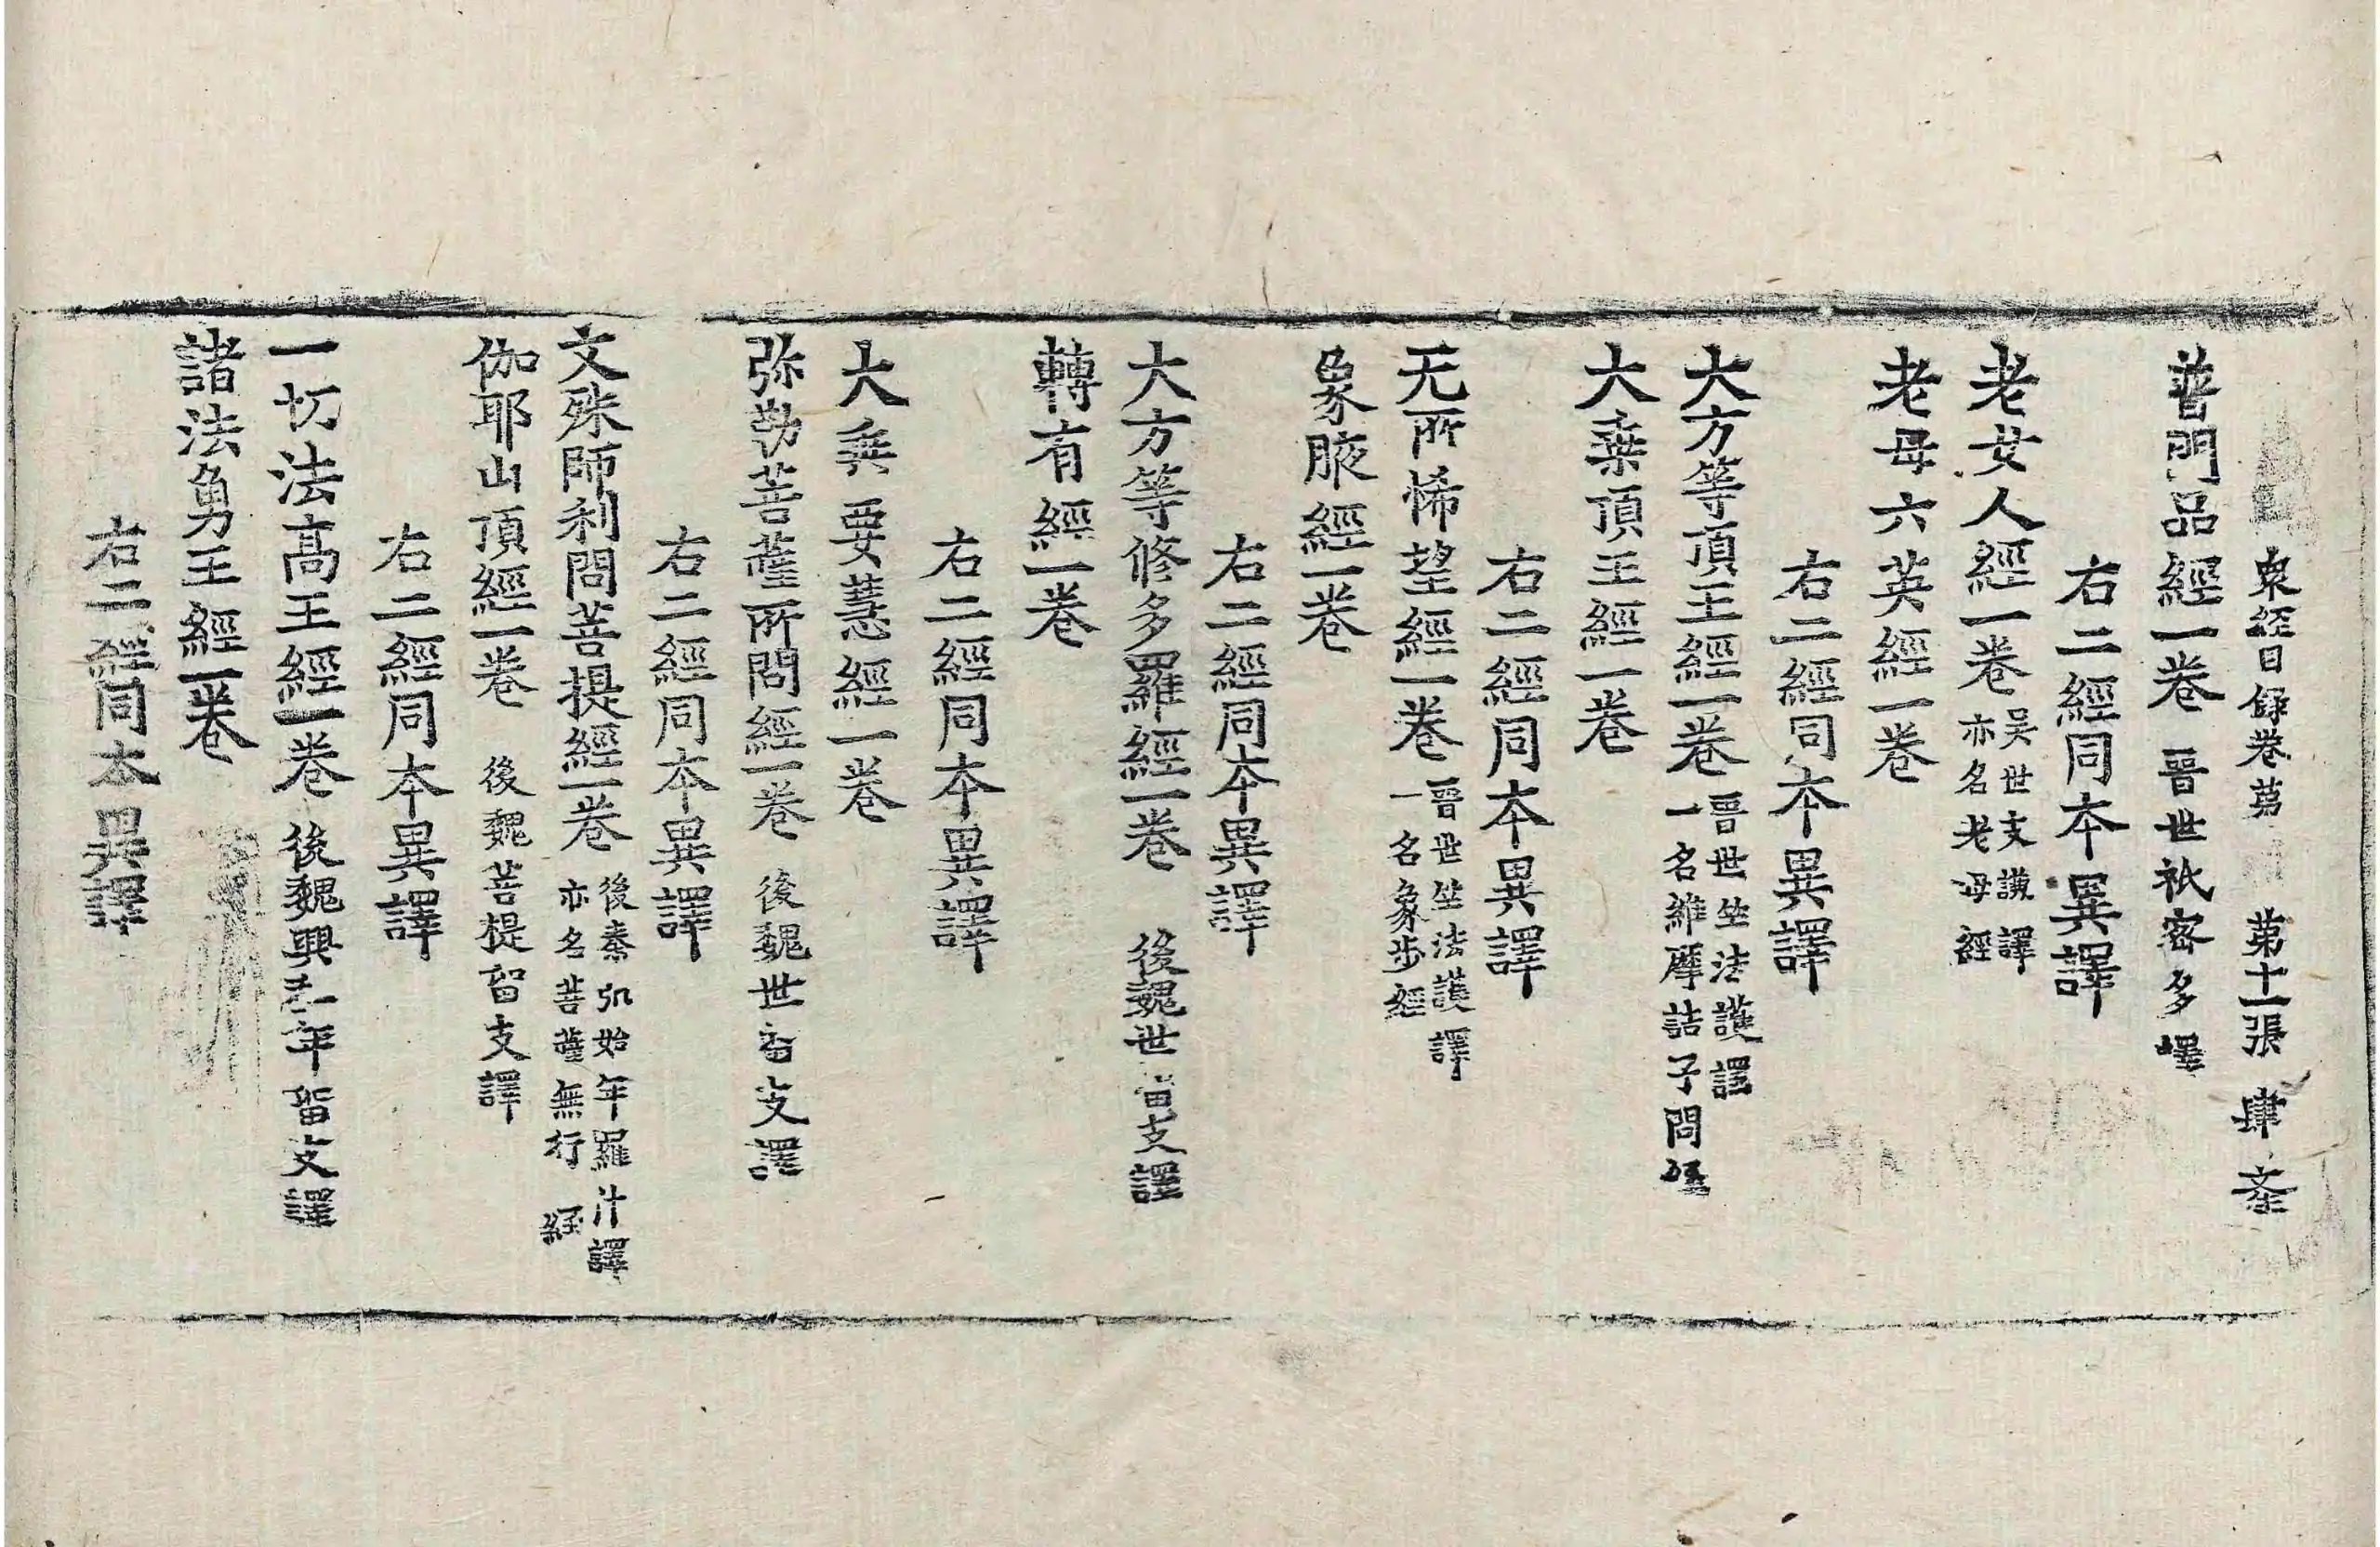 衆經目録卷苐 苐十一張 肆 
普門品經一卷 晋世祇密多譯
右二經同本異譯
老女人經一卷 吴世支謙譯
亦名老母經
老母六英經一卷
右二經同本異譯
大方等頂王經一卷 晋世竺法護譯
一名維摩詰子問經
大乗頂王經一卷
右二經同本異譯
无所悕望經一卷 晋世竺法護譯
一名象步經
象腋經一卷
右二經同本異譯
大方等修多羅經一卷 後魏世留支譯
轉有經一卷
右二經同本異譯
大乗要慧經一卷
弥勒菩薩所問經一卷 後魏世留支譯
右二經同本異譯
文殊師利問菩提經一卷 後秦弘始年羅什譯
亦名菩薩無行經
伽耶山頂經一卷 後魏菩提留支譯
右二經同本異譯
一切法高王經一卷 後魏興和年留支譯
諸法勇王經一卷
右二經同本異譯